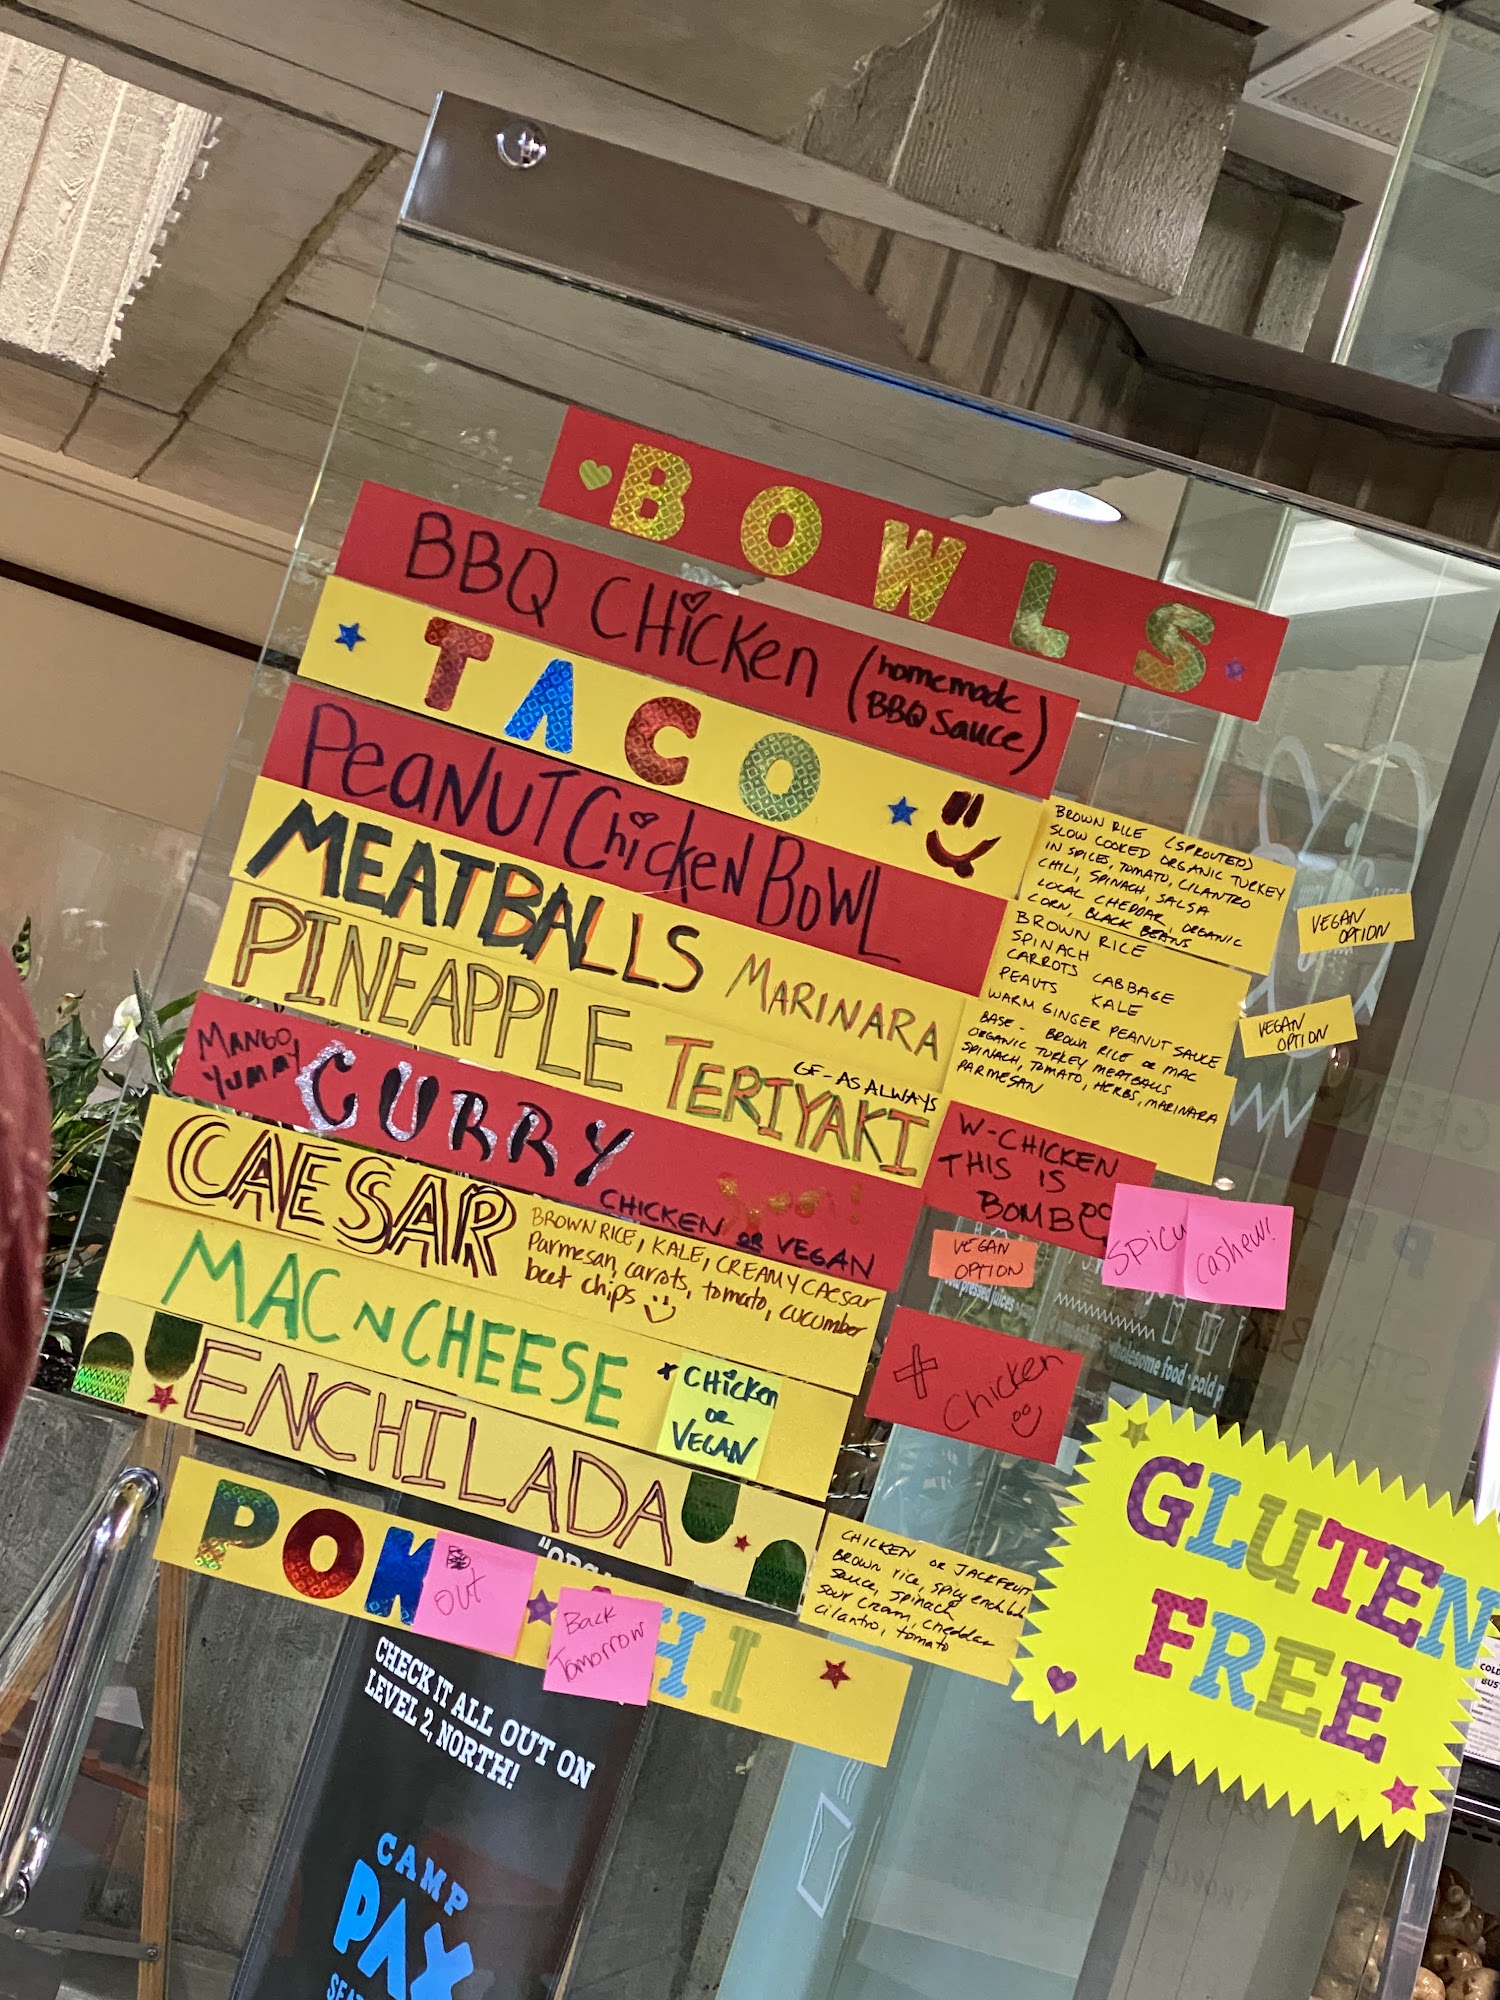 BOWLS
BBQ CHicKen (homemade
BBQ Sauce)
TACO
PeaNUT ChicKeN BOWL
MEATBALLS MARINARA
PINEAPPLE TERIYAKI
GF-AS ALWAYS
MANGO
YUMMY
CURRY
CHICKEN OR VEGAN
CAESAR
BROWN RICE, KALE, CREAMY CAesar
Parmesan, carrots, tomato, cucumber
beet chips
MAC N CHEESE
* CHicken
or
VEGAN
ENCHILADA
POK
OUT
Back
Tomorrow
HI
BROWN RICE (SPROUTED)
SLOW COOKED ORGANIC TURKEY
IN SPICES, TOMATO, CILANTRO
CHILI, SPINACH, SALSA
LOCAL CHEDDAR, ORGANIC
CORN, BLACK BEANS
VEGAN
OPTION
BROWN RICE
SPINACH
CARROTS CABBAGE
PEAUTS KALE
WARM GINGER PEANUT SAUCE
VEGAN
OPTION
BASE - BROWN RICE OR MAC
ORGANIC TURKEY MEATBALLS
SPINACH, TOMATO, HERBS, MARINARA
PARMESAN
W-CHICKEN
THIS IS
BOMB
Spicy
cashew!
VEGAN
OPTION
+
Chicken
CHICKEN OR JACKFRUIT
BROWN rice, spicy
sauce, spinach
sour cream, cheddar
cilantro, tomato
GLUTEN
FREE
pressed juices
wholesome food · cold p
CHECK IT ALL OUT ON
LEVEL 2, NORTH!
CAMP
PAX